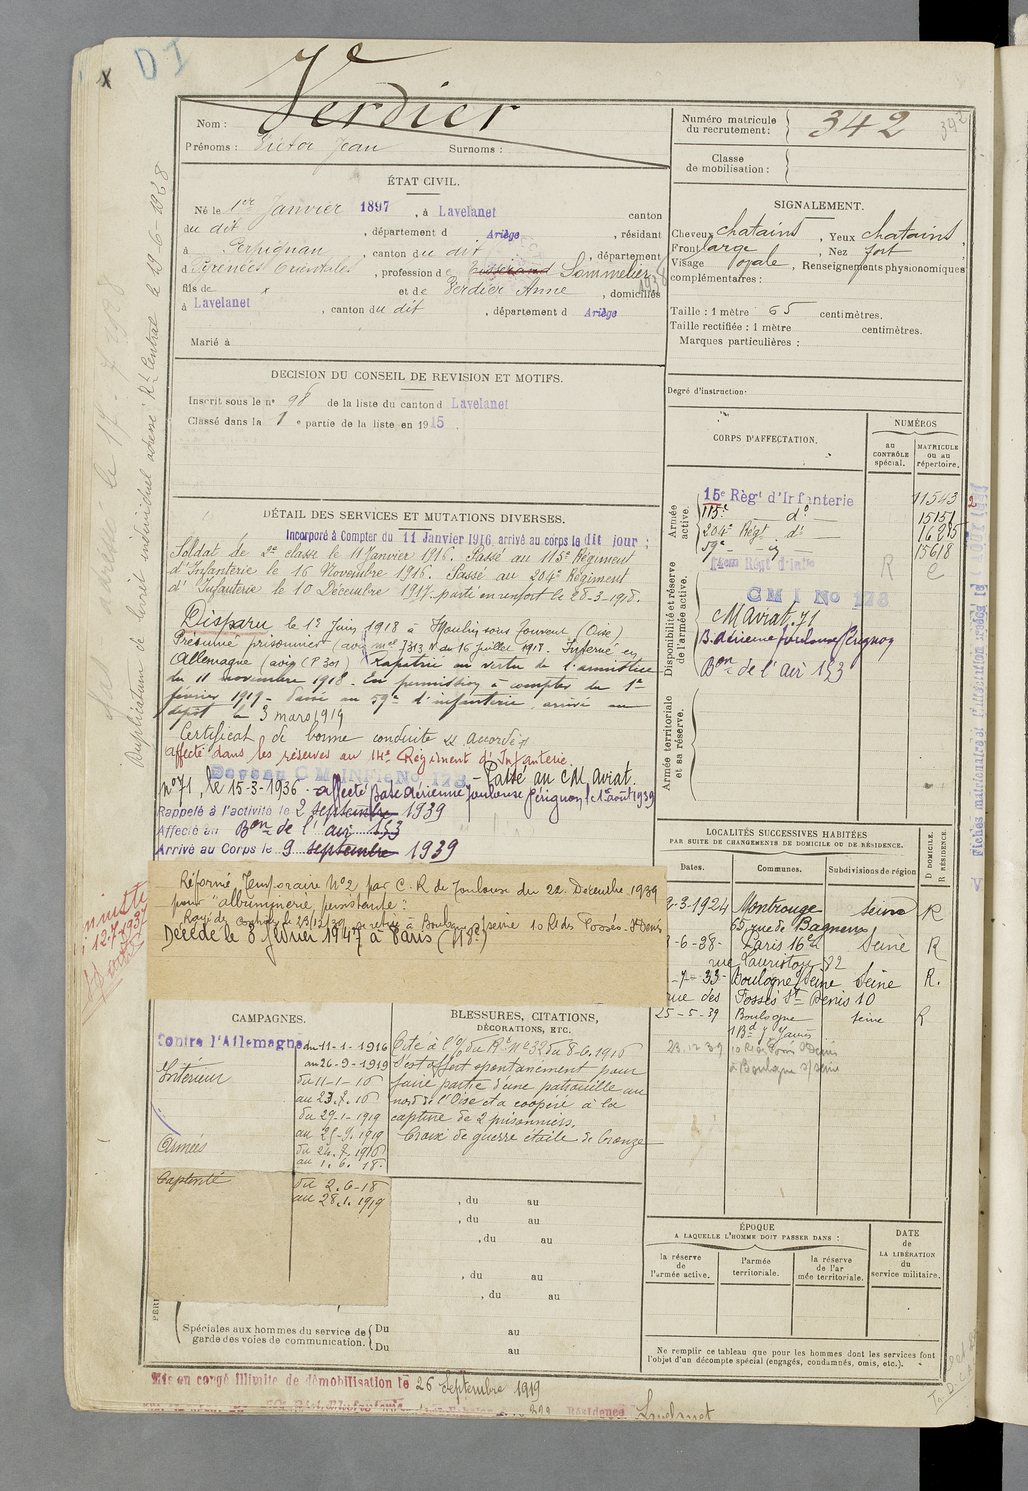 D I
x
Nom : Verdier
Prénoms : Victor Jean Surnoms :
Numéro matricule du recrutement : 342
342
Classe de mobilisation :
ÉTAT CIVIL.
Né le 1er Janvier 1897, à Lavelanet canton
du dit, département d Ariège, résidant
à Perpignan, canton du dit, département
d Pyrénées Orientales, profession de Sommelier
1938
fils de x et de Verdier Anne, domiciliés
à Lavelanet, canton du dit, département d Ariège
Marié à
SIGNALEMENT.
Cheveux chatains, Yeux chatains,
Front large, Nez fort
Visage ovale, Renseignements physionomiques
complémentaires :
Taille : 1 mètre 65 centimètres.
Taille rectifiée : 1 mètre centimètres.
Marques particulières :
Degré d'instruction.
DECISION DU CONSEIL DE REVISION ET MOTIFS.
Inscrit sous le no 98 de la liste du canton d Lavelanet
Classé dans la 1 e partie de la liste en 1915.
DÉTAIL DES SERVICES ET MUTATIONS DIVERSES.
Incorporé à Compter du 11 Janvier 1916, arrivé au corps le dit jour ;
Soldat de 2e classe le 11 Janvier 1916. Passé au 115e Régiment
d'Infanterie le 16 Novembre 1916. Passé au 204e Régiment
d'Infanterie le 10 Décembre 1917. parti en renfort le 28-3-1918.
Disparu le 1er Juin 1918 à Moulin sous Touvent (Oise)
Présumé prisonnier (avis mel 7313 N du 16 Juillet 1918. Interné en
Allemagne (avis CP 301) Rapatrié en vertu de l'armistice
du 11 novembre 1918. En permission à compter du 1er
février 1919. Passé au 59e d'infanterie, arrivé au
dépôt le 3 mars 1919
Certificat de bonne conduite accordé
Affecté dans les réserves au 14e Régiment d'Infanterie.
C M INFIe No 173 - Passé au CM aviat.
No 71, le 15-3-1936 - affecté Base Aérienne Toulouse Pérignon le 1er août 1939
Rappelé à l'activité le 2 septembre 1939
Affecté au Bon de l'air 153
Arrivé au Corps le 9 septembre 1939
Réformé Temporaire No 2 par C. R. de Toulouse du 22 Décembre 1939
pour "albuminerie persistante"
Rayé des contrôles le 23/12/39 se retire à Boulogne s/seine 10 R. des Fossés St Denis
Décédé le 8 février 1947 à Paris (18e)
CORPS D'AFFECTATION.
NUMÉROS
au CONTRÔLE spécial.
MATRICULE ou au répertoire.
Armée active.
15e Régt d'Infanterie 11543
115e do 15151
204e Régt do 16285
59e 15618
14eme Régt d'Infie R C
Disponibilité et réserve de l'armée active.
C M I No 173
C M aviat. 71
B. Aérienne Toulouse Pérignon
Bon de l'air 153
Armée territoriale et sa réserve.
LOCALITÉS SUCCESSIVES HABITÉES
PAR SUITE DE CHANGEMENTS DE DOMICILE OU DE RÉSIDENCE.
Dates. Communes. Subdivisions de région D DOMICILE. R RÉSIDENCE.
9-3-1924 Montrouge Seine R
65 rue de Bagneux
-6-28- Paris 16e Seine R
rue Lauriston 82
-7-33- Boulogne/Seine Seine R.
rue des Fossés St Denis 10
25-5-39 Boulogne Seine R
23.12.39 10 R. des Fossés St Denis
à Boulogne s/seine
CAMPAGNES.
Contre l'Allemagne du 11-1-1916
au 26-9-1919
Intérieur du 11-1-16
Armées
Captivité du 2.6-18
au 28.1.1919
BLESSURES, CITATIONS,
DÉCORATIONS, ETC.
Cité à l'o/ du Rt No 32 du 8-6-1918
S'est offert spontanément pour
faire partie d'une patrouille au
nord de l'Oise et a coopéré à la
capture de 2 prisonniers.
Croix de guerre étoile de bronze
, du au
, du au
, du au
, du au
, du au
Spéciales aux hommes du service de garde des voies de communication. Du au
Du au
ÉPOQUE
A LAQUELLE L'HOMME DOIT PASSER DANS :
la réserve de l'armée active.
l'armée territoriale.
la réserve de l'armée territoriale.
DATE de LA LIBÉRATION du service militaire.
Ne remplir ce tableau que pour les hommes dont les services font
l'objet d'un décompte spécial (engagés, condamnés, omis, etc.).
Mis en congé illimité de démobilisation le 26 Septembre 1919
Résidence Lavelanet
Duplicatum de livret individuel adressé Rt Central le 19-6-1928